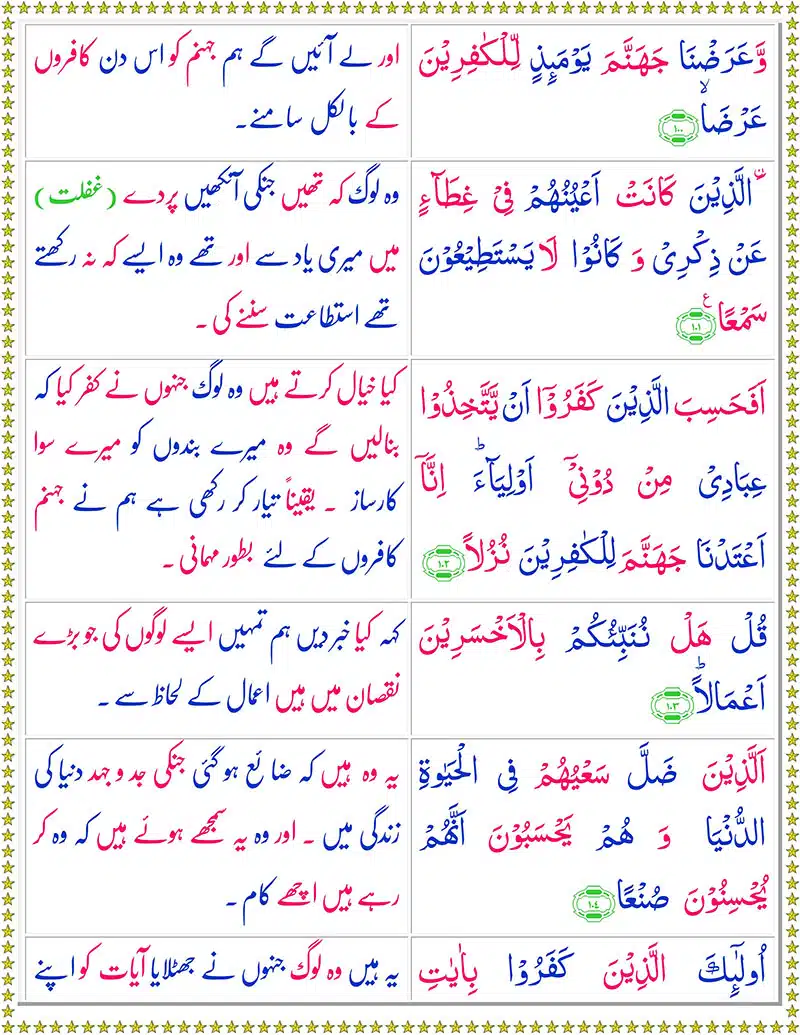 وَّعَرَضۡنَا جَهَنَّمَ يَوۡمَئِذٍ لِّلۡكٰفِرِيۡنَ
عَرۡضَاۙ ۝۱۰۰
اور لے آئیں گے ہم جہنم کو اس دن کافروں
کے بالکل سامنے۔
اۨلَّذِيۡنَ كَانَتۡ اَعۡيُنُهُمۡ فِىۡ غِطَآءٍ
عَنۡ ذِكۡرِىۡ وَ كَانُوۡا لَا يَسۡتَطِيۡعُوۡنَ
سَمۡعًا ۝۱۰۱ ع
وہ لوگ کہ تھیں جنکی آنکھیں پردے (غفلت)
میں میری یاد سے اور تھے وہ ایسے کہ نہ رکھتے
تھے استطاعت سننے کی ۔
اَفَحَسِبَ الَّذِيۡنَ كَفَرُوۡۤا اَنۡ يَّتَّخِذُوۡا
عِبَادِىۡ مِنۡ دُوۡنِىۡۤ اَوۡلِيَآءَ‌ ؕ اِنَّاۤ
اَعۡتَدۡنَا جَهَنَّمَ لِلۡكٰفِرِيۡنَ نُزُلاً ۝۱۰۲
کیا خیال کرتے ہیں وہ لوگ جنہوں نے کفر کیا کہ
بنالیں گے وہ میرے بندوں کو میرے سوا
کارساز ۔ یقیناً تیار کر رکھی ہے ہم نے جہنم
کافروں کے لئے بطور مہمانی ۔
قُلۡ هَلۡ نُـنَبِّئُكُمۡ بِالۡاَخۡسَرِيۡنَ
اَعۡمَالاً ؕ ۝۱۰۳
کہہ کیا خبر دیں ہم تمہیں ایسے لوگوں کی جو بڑے
نقصان میں ہیں اعمال کے لحاظ سے ۔
اَلَّذِيۡنَ ضَلَّ سَعۡيُهُمۡ فِى الۡحَيٰوةِ
الدُّنۡيَا وَ هُمۡ يَحۡسَبُوۡنَ اَنَّهُمۡ
يُحۡسِنُوۡنَ صُنۡعًا ۝۱۰٤
یہ وہ ہیں کہ ضائع ہو گئی جنکی جد و جہد دنیا کی
زندگی میں ۔ اور وہ یہ سمجھے ہوئے ہیں کہ وہ کر
رہے ہیں اچھے کام ۔
اُولٰٓئِكَ الَّذِيۡنَ كَفَرُوۡا بِاٰيٰتِ
یہ ہیں وہ لوگ جنہوں نے جھٹلایا آیات کو اپنے